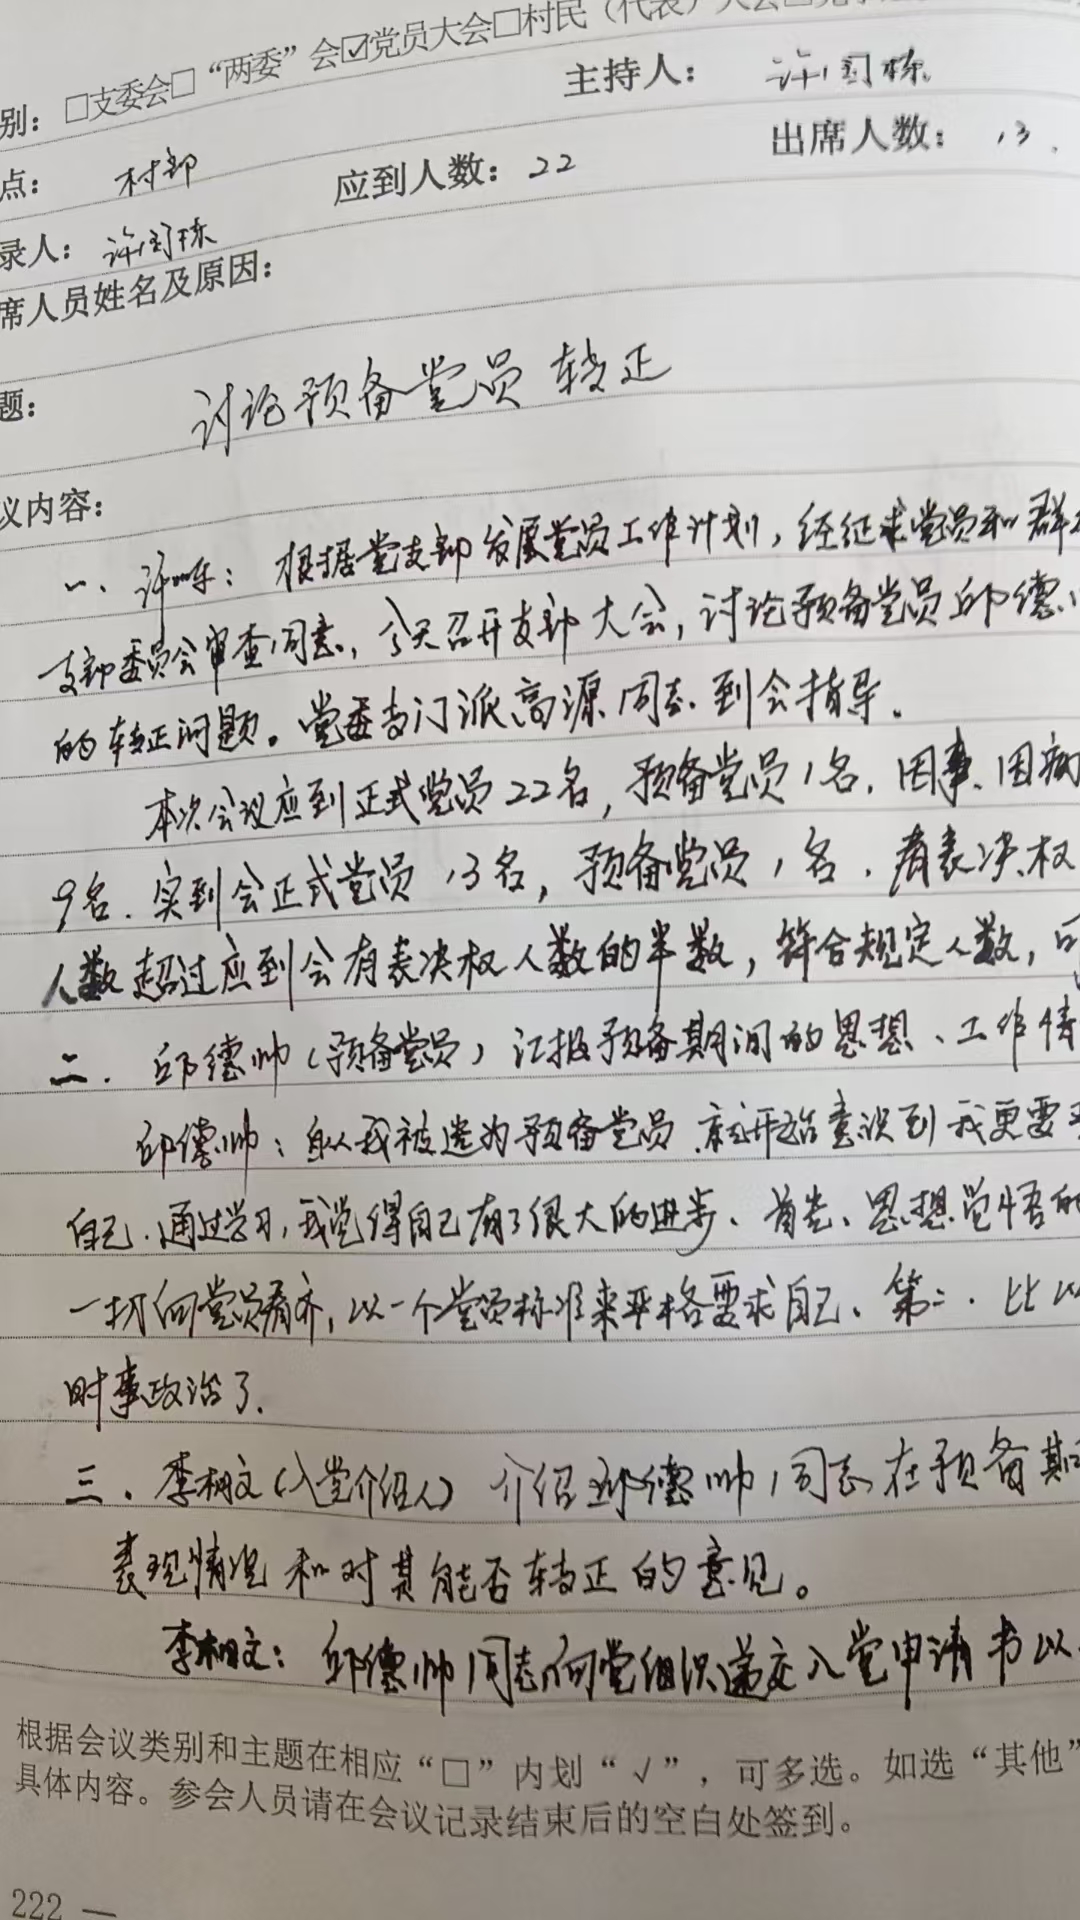 别：□支委会□“两委”会☑党员大会□村民（代表）大会□
主持人：许国栋
点：村部 应到人数：22 出席人数：13.
录人：许国栋
席人员姓名及原因：
题：讨论预备党员转正
议内容：
一、许国栋：根据党支部发展党员工作计划，经征求党员和群
支部委员会审查同意，今天召开支部大会，讨论预备党员邱德
的转正问题。党委专门派高源同志到会指导。
本次会议应到正式党员22名，预备党员1名．因事、因病
9名．实到会正式党员13名，预备党员1名．有表决权
人数超过应到会有表决权人数的半数，符合规定人数，可
二．邱德帅（预备党员）汇报预备期间的思想、工作情
邱德帅：自从我被选为预备党员．就开始意识到我更要
自己．通过学习，我觉得自己有了很大的进步、首先、思想觉悟的
一切向党员看齐，以一个党员标准来严格要求自己、第二．比以
时事政治了．
三．李树文（入党介绍人）介绍邱德帅同志在预备期
表现情况和对其能否转正的意见。
李树文：邱德帅同志向党组织递交入党申请书以
根据会议类别和主题在相应“□”内划“√”，可多选。如选“其他”
具体内容。参会人员请在会议记录结束后的空白处签到。
222 —